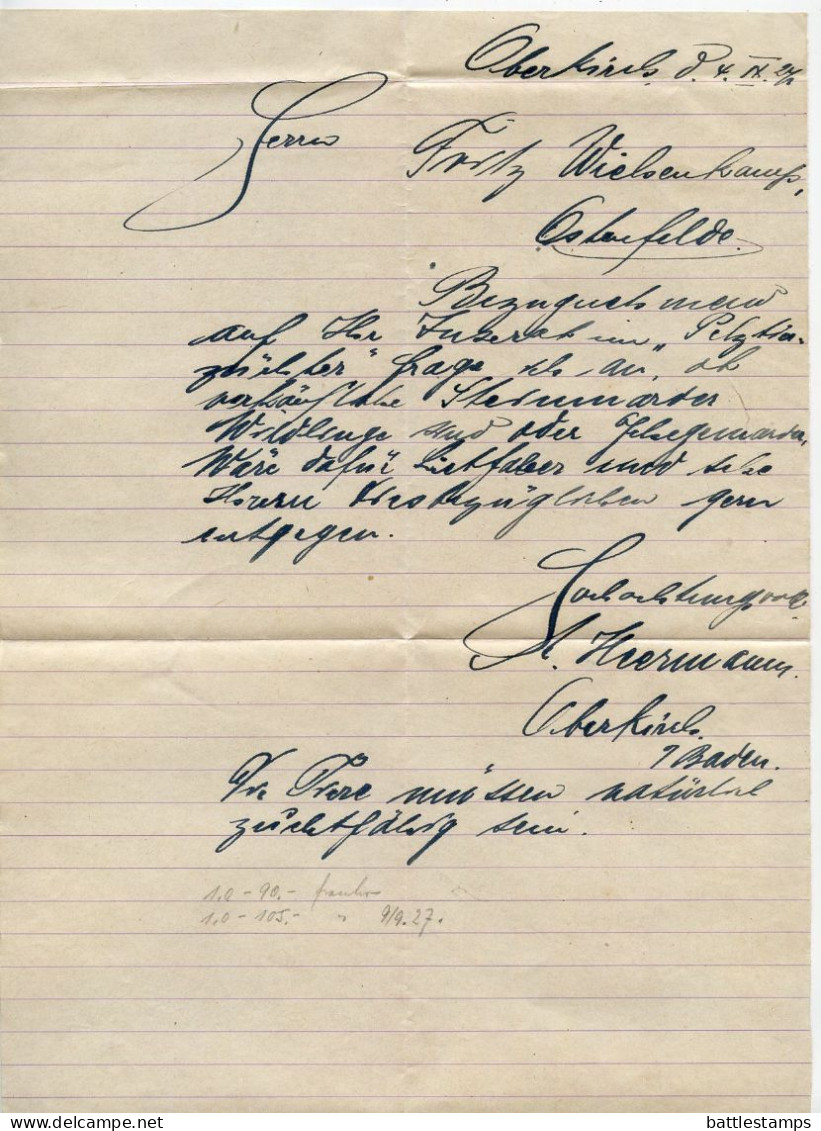 Oberkirch, d. 4. IX. 27
Herrn
Fritz Wielsenkamp,
Ostenfelde.
Bezugnehmend
auf Ihr Inserat im "Pelztier-
züchter" frage ich an, ob
verkäufliche Steinmarder
Wildlinge sind oder
Wäre dafür Liebhaber und sehe
Ihrem diesbezüglichen gern
entgegen.
Hochachtungsvoll
A. Heermann.
Oberkirch.
i/Baden.
Die Tiere müssen natürlich
zuchtfähig sein.
1,0 - 90.- franko
1,0 - 105.- " 9/9.27.
battlestamps